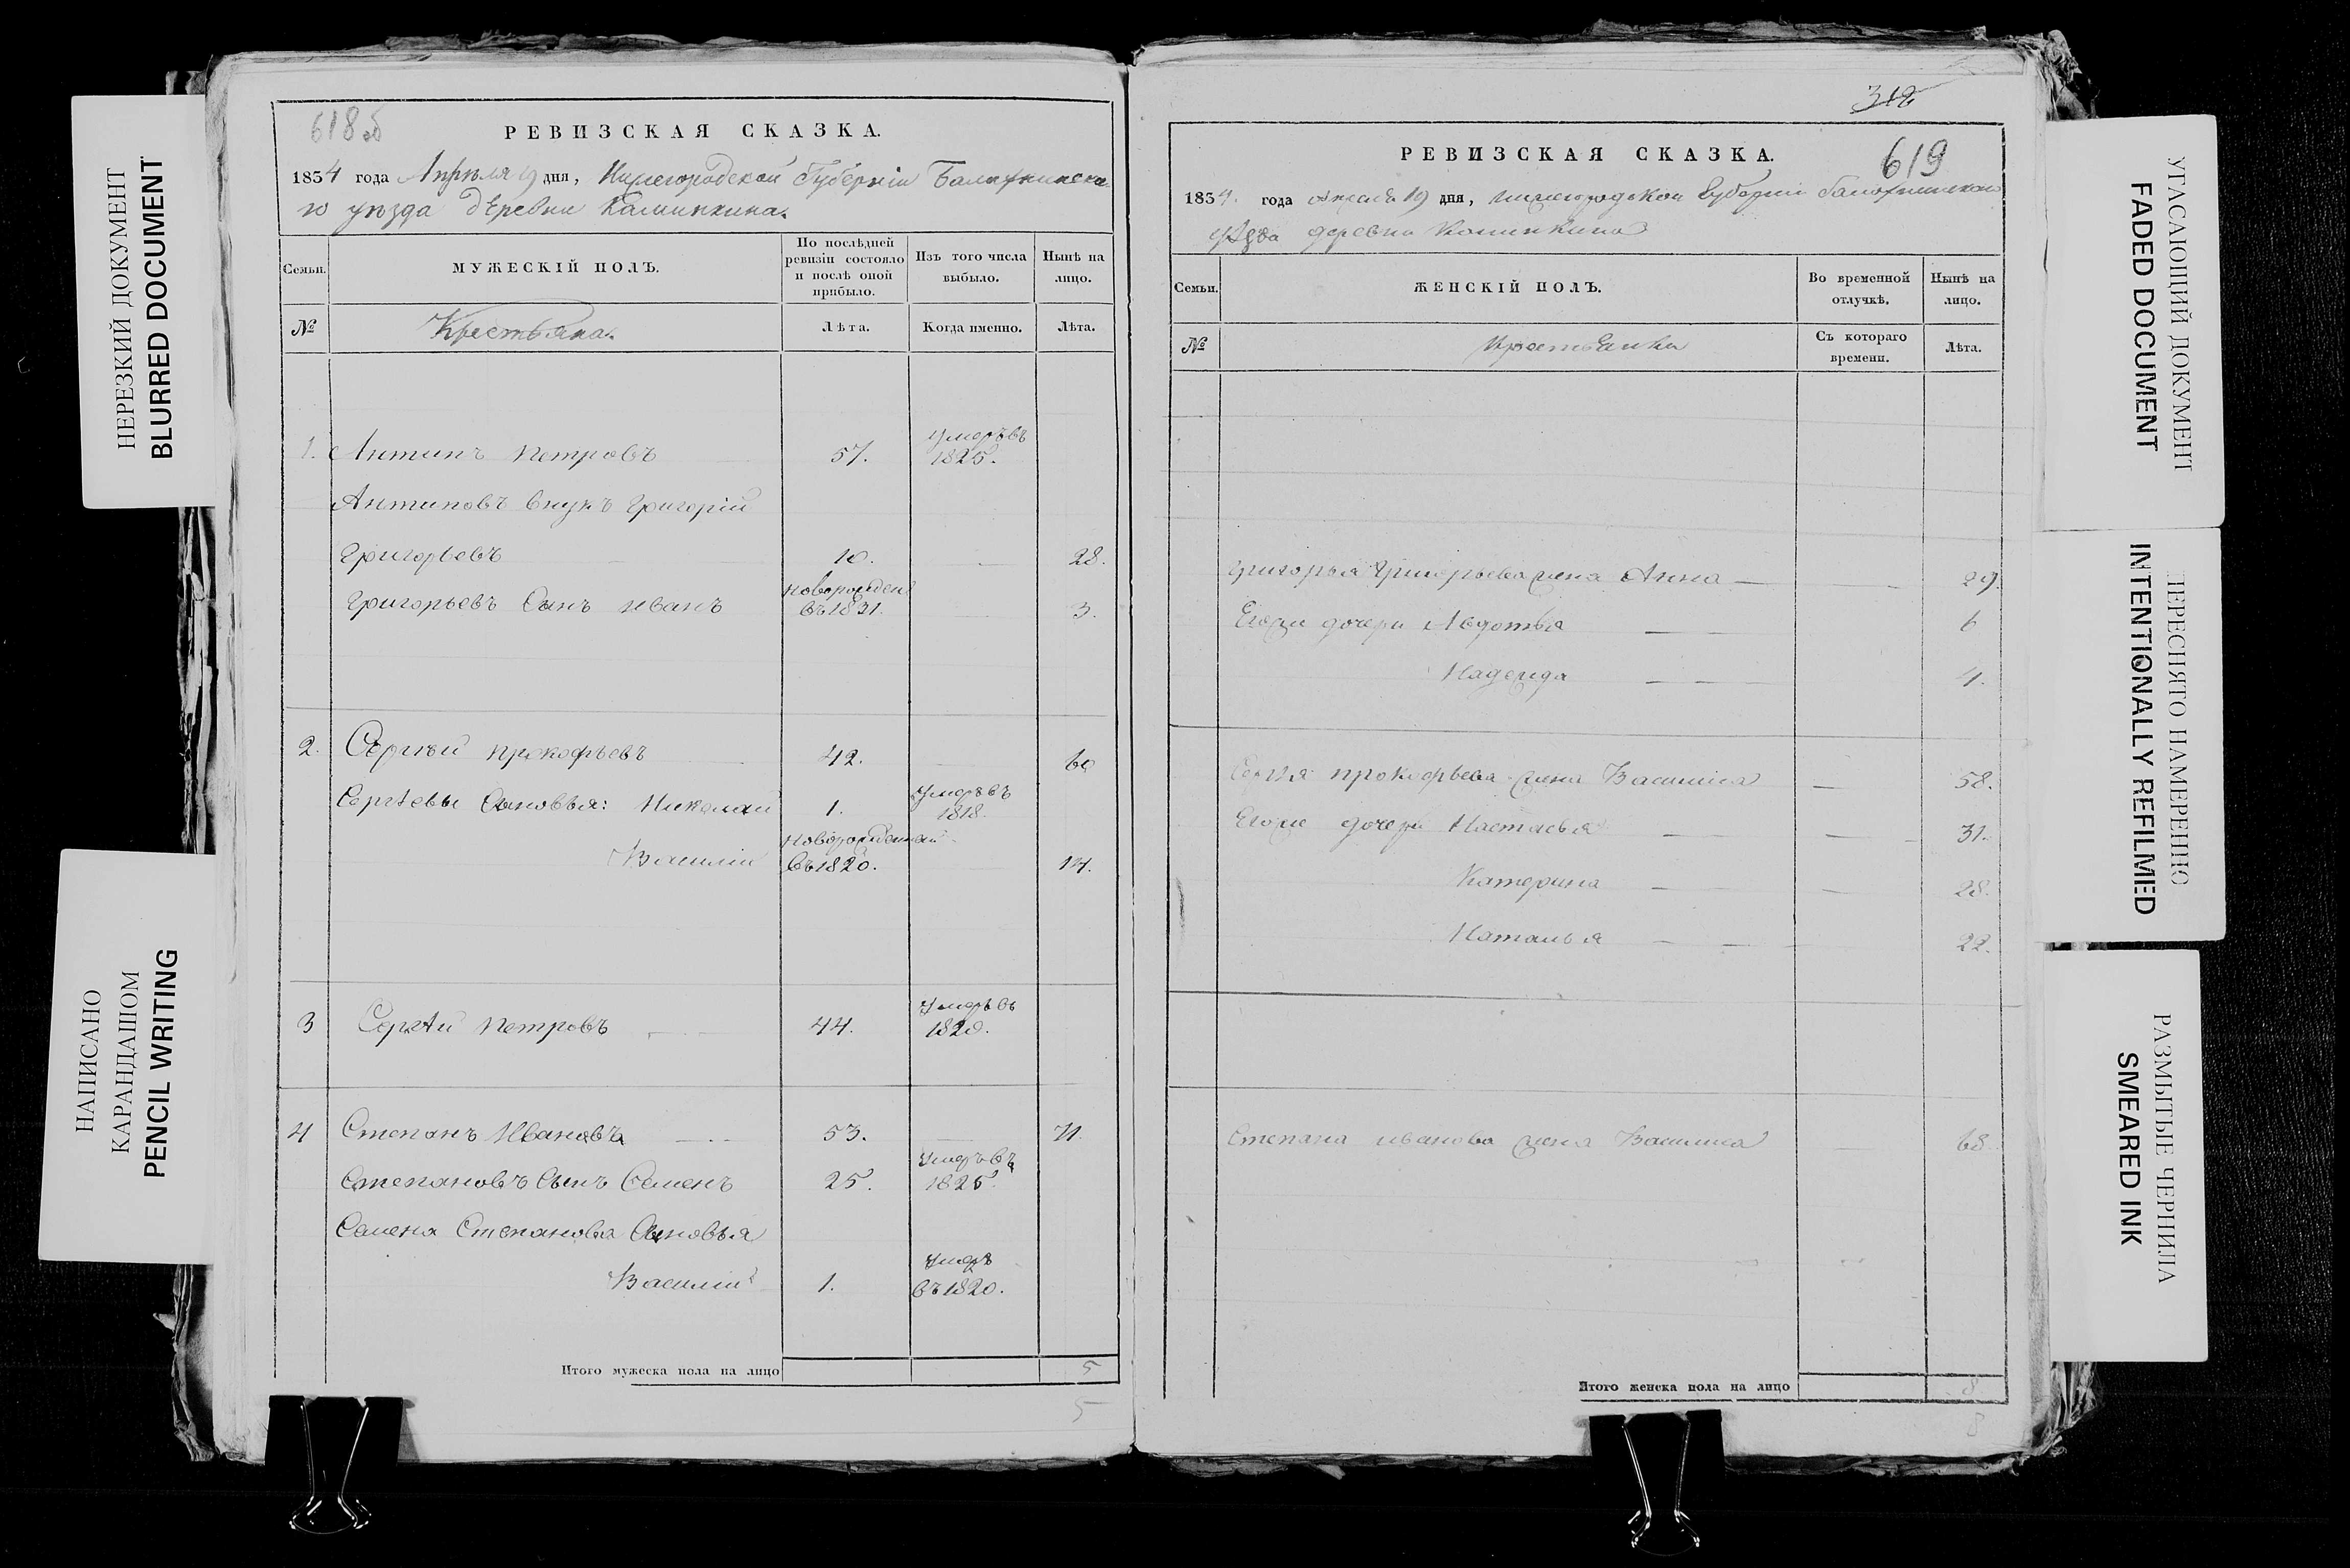 НЕРЕЗКИЙ ДОКУМЕНТ
BLURRED DOCUMENT
НАПИСАНО
КАРАНДАШОМ
PENCIL WRITING
618об
РЕВИЗСКАЯ СКАЗКА.
1834 года Апрѣля 19 дня, Нижегородской Губерніи Балахнинска
го уѣзда деревни Калинкина.
Семьи.
МУЖЕСКІЙ ПОЛЪ.
По послѣдней ревизіи состояло и послѣ оной прибыло.
Изъ того числа выбыло.
Нынѣ на лицо.
№ Крестьяна. Лѣта. Когда именно. Лѣта.
умеръ въ
1. Антипъ Петровъ 57. 1825.
Антиповъ внукъ Григорій
Григорьевъ 10. 28.
новорожден
Григорьевъ Сынъ Иванъ въ 1831. 3.
2. Сергѣй Прокофьевъ 42. 60
умеръ въ
Сергѣевы Сыновья: Николай 1. 1818.
новорожденный
Василій въ 1820. 14.
умеръ въ
3 Сергѣй Петровъ 44. 1820.
4 Степанъ Ивановъ 53. 71.
умеръ въ
Степановъ Сынъ Семенъ 25. 1825.
Семена Степанова Сыновья
умеръ
Василій 1. въ 1820.
Итого мужеска пола на лицо 5
5
312
РЕВИЗСКАЯ СКАЗКА. 619
1834. года Апреля 19 дня, Нижегородской Губерніи Балахнинскаго
уѣзда деревни Калинкина
Семьи.
ЖЕНСКІЙ ПОЛЪ.
Во временной отлучкѣ.
Нынѣ на лицо.
№ Крестьянки Съ котораго времени. Лѣта.
Григорья Григорьева жена Анна 29
Егоже дочери Авдотья 6
Надежда 4.
Сергѣя Прокофьева жена Василиса 58.
Егоже дочери Настасья 31.
Катерина 28.
Наталья 22.
Степана Иванова жена Василиса 68.
Итого женска пола на лицо 8
8
УГАСАЮЩИЙ ДОКУМЕНТ
FADED DOCUMENT
ПЕРЕСНЯТО НАМЕРЕННО
INTENTIONALLY REFILMED
РАЗМЫТЫЕ ЧЕРНИЛА
SMEARED INK